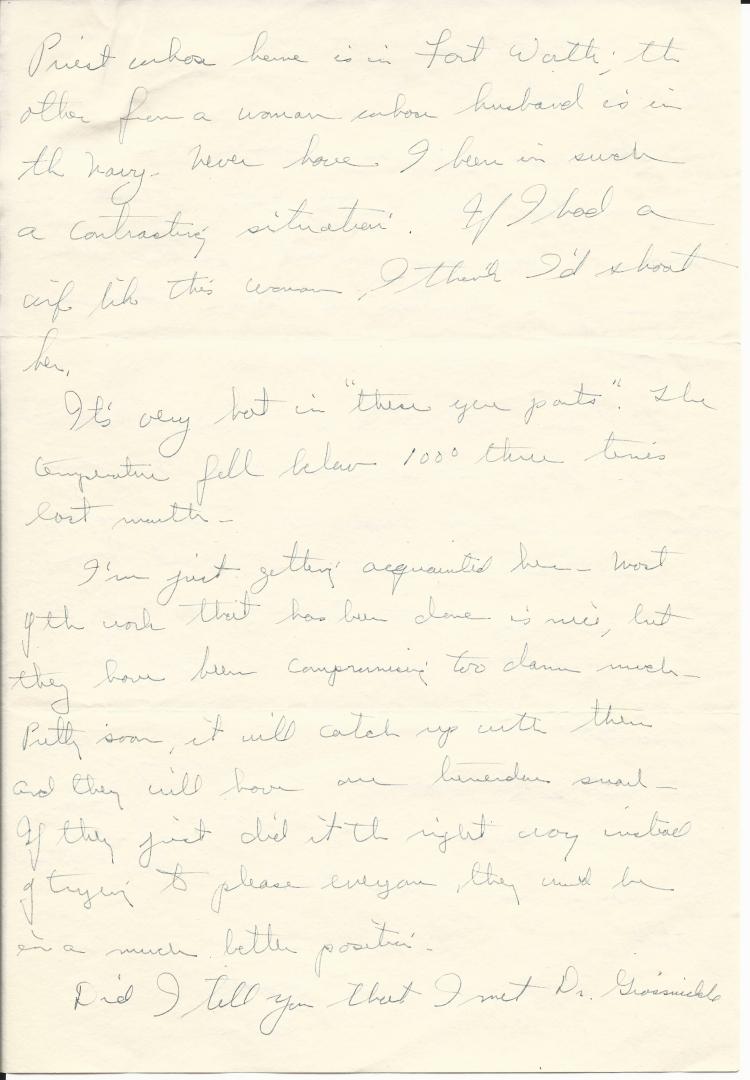 Priest whose home is in Fort Worth; the
other from a woman whose husband is in
the Navy. Never have I been in such
a contrasting situation. If I had a
wife like this woman, I think I'd shoot
her.
It's very hot in "these yere parts". The
temperature fell below 100° three times
last month.
I'm just getting acquainted here. Most
of the work that has been done is nice, but
they have been compromising too damn much.
Pretty soon, it will catch up with them
and they will have one tremendous snarl.
If they just did it the right way instead
of trying to please everyone, they would be
in a much better position.
Did I tell you that I met Dr. Grossnickle